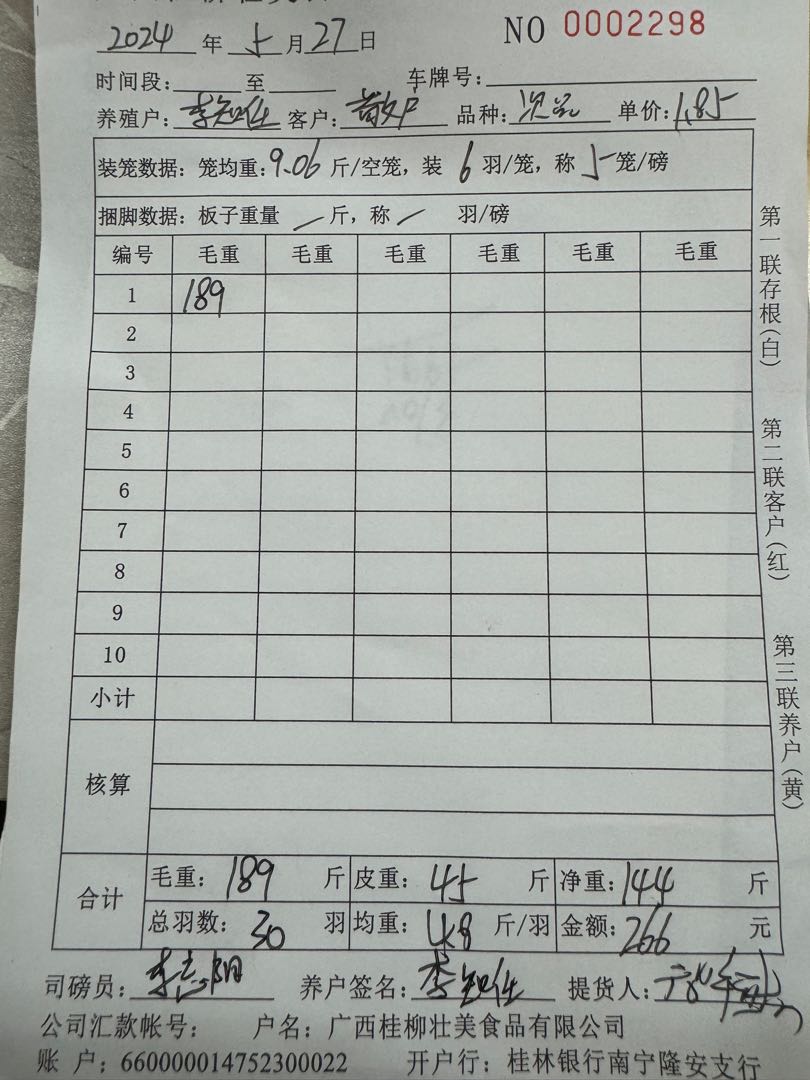 2024 年 5 月 27 日 NO 0002298
时间段: 至 车牌号:
养殖户: 李知任 客户: 散户 品种: 次品 单价: 1.85
装笼数据: 笼均重: 9.06 斤/空笼, 装 6 羽/笼, 称 5 笼/磅
捆脚数据: 板子重量 / 斤, 称 / 羽/磅
编号 毛重 毛重 毛重 毛重 毛重 毛重
1 189
2
3
4
5
6
7
8
9
10
小计
核算
合计 毛重: 189 斤 皮重: 45 斤 净重: 144 斤
总羽数: 30 羽 均重: 4.8 斤/羽 金额: 266 元
司磅员: 李志阳 养户签名: 李知任 提货人:
公司汇款帐号: 户名: 广西桂柳壮美食品有限公司
账 户: 660000014752300022 开户行: 桂林银行南宁隆安支行
第一联存根(白)
第二联客户(红)
第三联养户(黄)